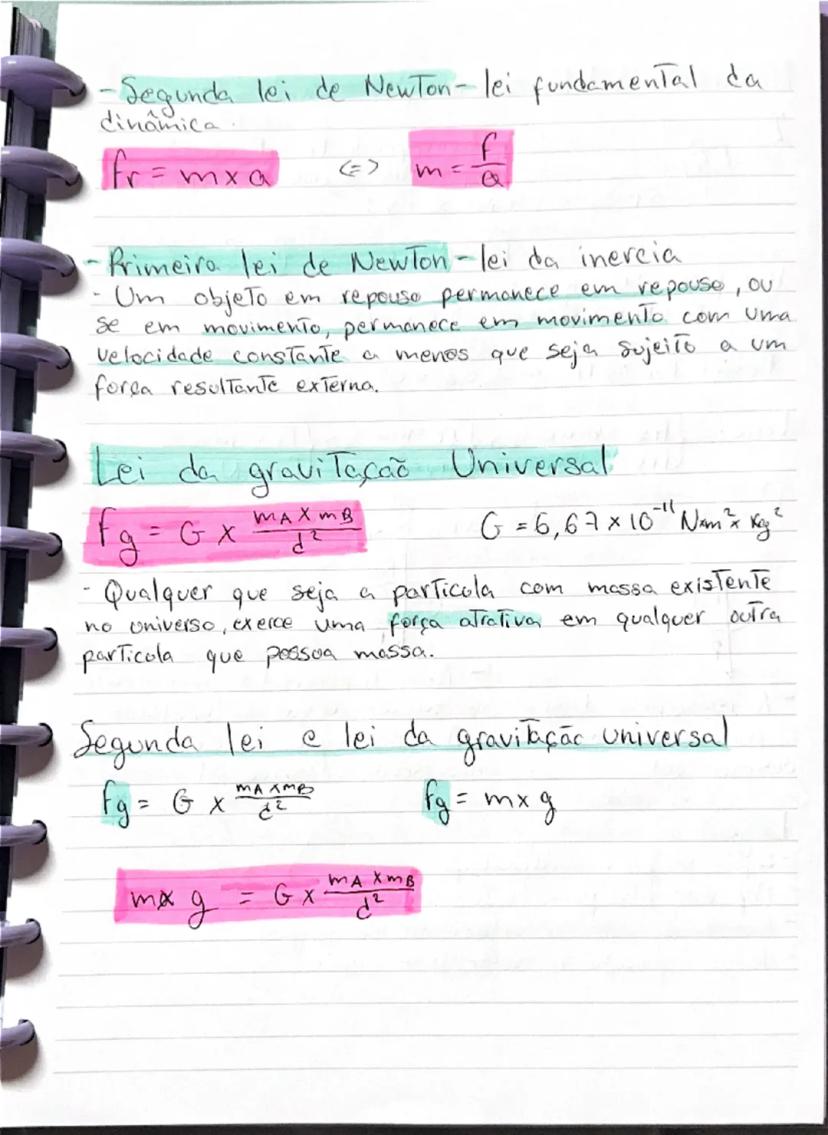 - Segunda lei de Newton - lei fundamental da
dinâmica.
fr = m x a <=> m = f/a
- Primeira lei de Newton - lei da inercia
- Um objeto em repouso permanece em repouso, ou
se em movimento, permanece em movimento com uma
velocidade constante a menos que seja sujeito a um
força resultante externa.
Lei da gravitação Universal
fg = G x mA x mB/d² G = 6,67 x 10⁻¹¹ N x m² x Kg²
- Qualquer que seja a particola com massa existente
no universo, exerce uma força atrativa em qualquer outra
particola que possoa massa.
Segunda lei e lei da gravitação universal
fg = G x mA x mB/d² fg = m x g
m x g = G x mA x mB/d²